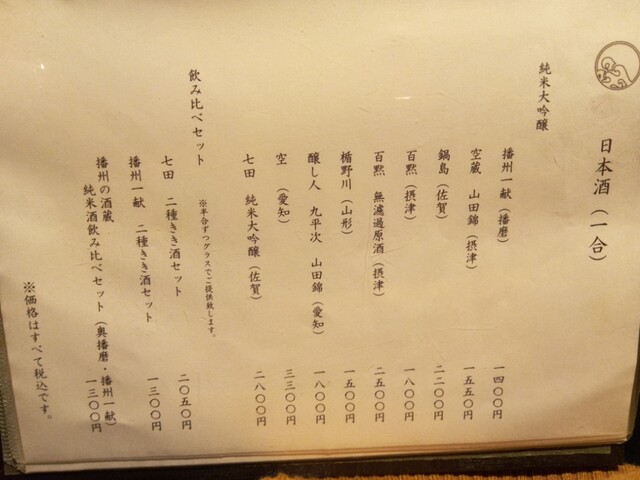 日本酒（一合）
純米大吟醸
播州一献（播磨） 一四〇〇円
空蔵 山田錦（摂津） 一五五〇円
鍋島（佐賀） 二二〇〇円
百黙（摂津） 一八〇〇円
百黙 無濾過原酒（摂津） 二五〇〇円
楯野川（山形） 一五〇〇円
醸し人 九平次 山田錦（愛知） 一八〇〇円
空（愛知） 三三〇〇円
七田 純米大吟醸（佐賀） 二八〇〇円
飲み比べセット
※半合ずつグラスでご提供致します。
七田 二種きき酒セット 二〇五〇円
播州一献 二種きき酒セット 一三〇〇円
播州の酒蔵
純米酒飲み比べセット（奥播磨・播州一献） 一三〇〇円
※価格はすべて税込です。